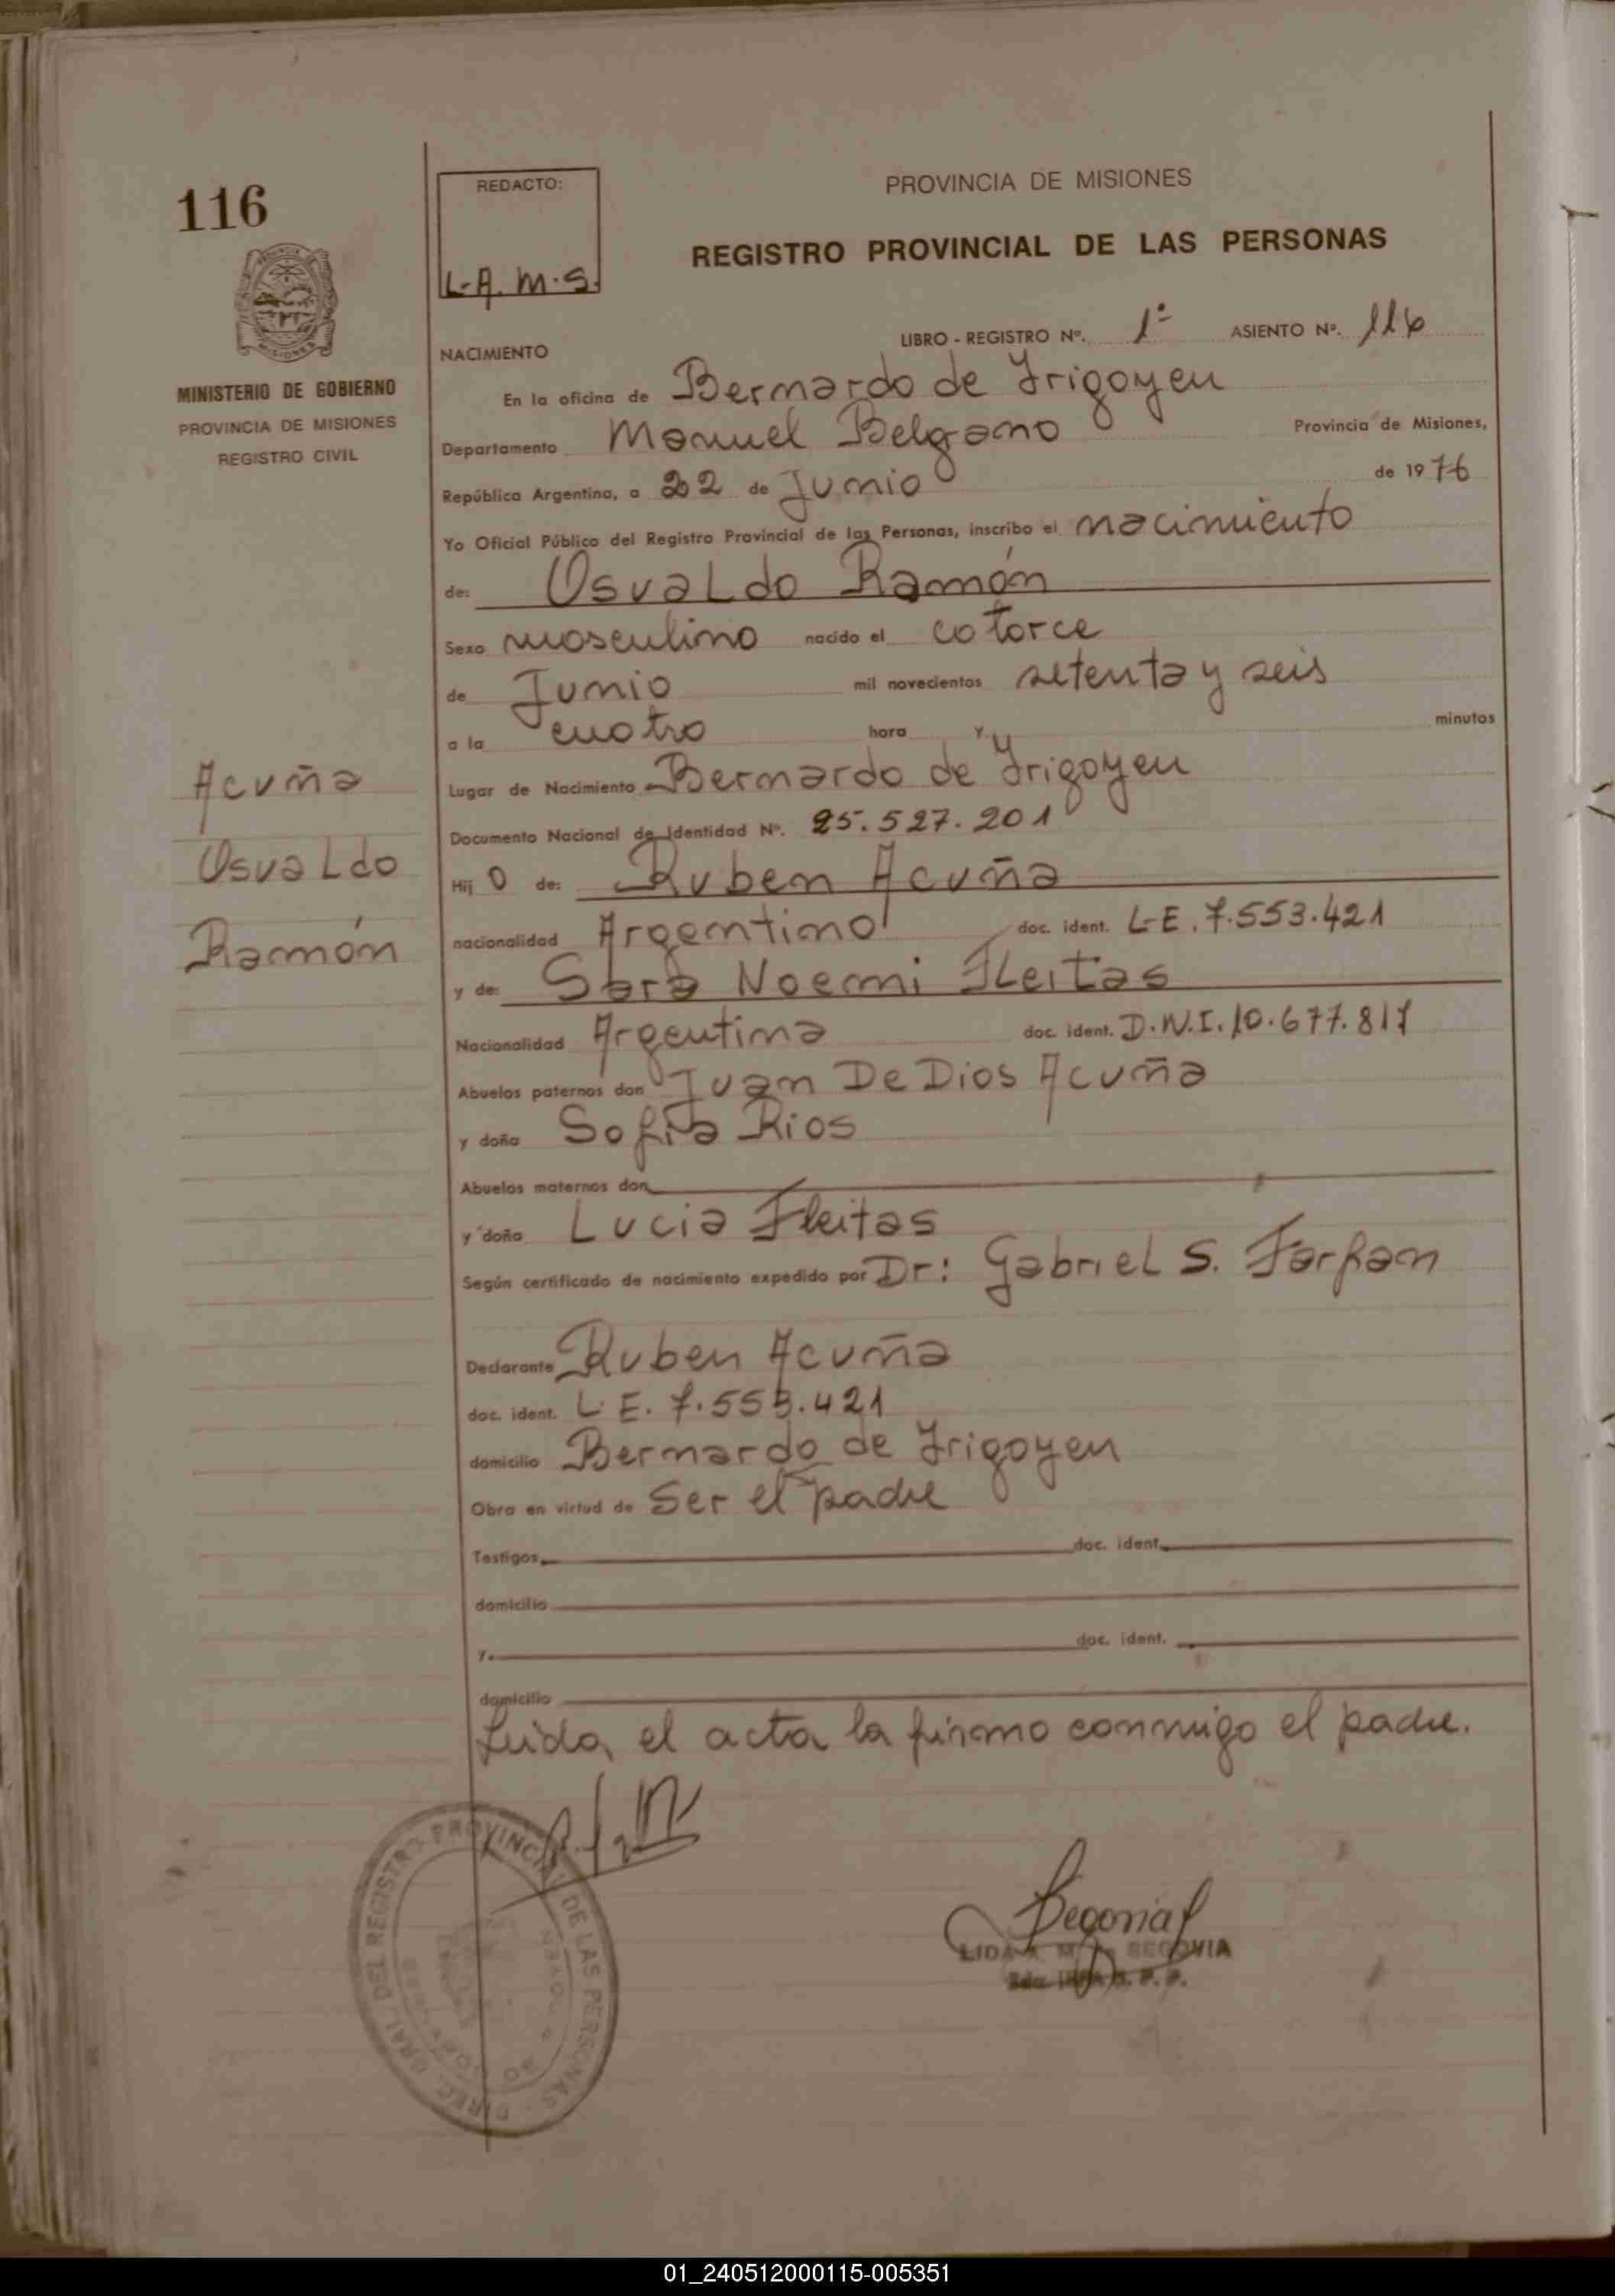 116
REDACTO:
L.A.M.S.
PROVINCIA DE MISIONES
REGISTRO PROVINCIAL DE LAS PERSONAS
MISIONES
MINISTERIO DE GOBIERNO
PROVINCIA DE MISIONES
REGISTRO CIVIL
LIBRO - REGISTRO Nº. 1º ASIENTO Nº. 116
NACIMIENTO
En la oficina de Bernardo de Irigoyen
Departamento Manuel Belgrano Provincia de Misiones,
República Argentina, a 22 de Junio de 1976
Yo Oficial Público del Registro Provincial de las Personas, inscribo el nacimiento
de: Osvaldo Ramón
Sexo masculino nacido el catorce
de Junio mil novecientos setenta y seis
a la cuatro hora y minutos
Lugar de Nacimiento Bernardo de Irigoyen
Documento Nacional de Identidad Nº. 25.527.201
Acuña
Osvaldo
Ramón
Hij o de: Ruben Acuña
nacionalidad Argentino doc. ident. L.E. 7.553.421
y de: Sara Noemi Fleitas
Nacionalidad Argentina doc. ident. D.N.I. 10.677.817
Abuelos paternos don Juan De Dios Acuña
y doña Sofia Rios
Abuelos maternos don
y doña Lucia Fleitas
Según certificado de nacimiento expedido por Dr: Gabriel S. Farfan
Declarante Ruben Acuña
doc. ident. L.E. 7.553.421
domicilio Bernardo de Irigoyen
Obra en virtud de Ser el padre
Testigos doc. ident.
domicilio
y. doc. ident.
domicilio
Leida el acta la firmo conmigo el padre.
DIREC. GRAL. DEL REGISTRO PROVINCIAL DE LAS PERSONAS
SEGOVIA
01_240512000115-005351